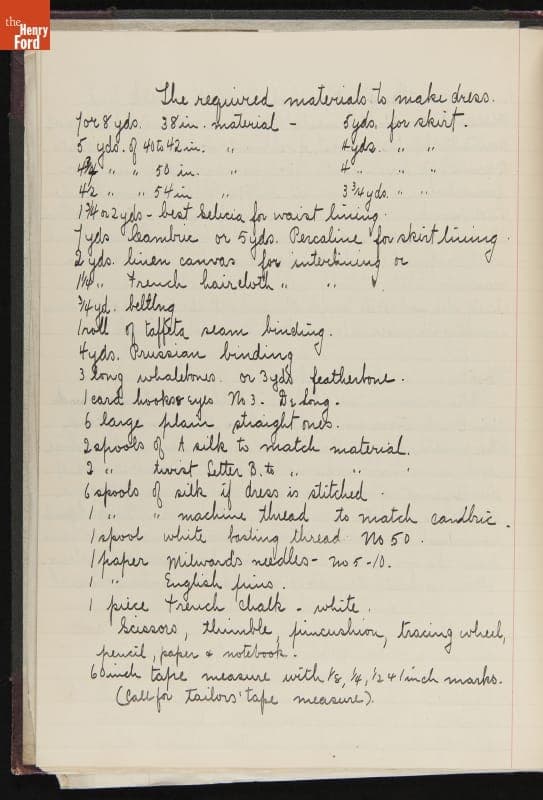 the
Henry
Ford
The required materials to make dress.
7 or 8 yds. 38 in. material - 5 yds. for skirt.
5 yds. of 40 to 42 in. " 4 yds. " "
4 3/4 " " 50 in. " 4 " " "
4 1/2 " " 54 in " 3 3/4 yds. " "
1 3/4 or 2 yds - best Selicia for waist lining.
7 yds Cambric or 5 yds. Percaline for skirt lining.
2 yds. linen canvas for interlining or
1 1/4 " French haircloth " " .
3/4 yd. belting
1 roll of taffeta seam binding.
4 yds. Prussian binding
3 long whalebones or 3 yds featherbone.
1 card hooks & eyes No 3. De Long.
6 large plain straight ones.
2 spools of A silk to match material.
2 " twist Letter B. to " " .
6 spools of silk if dress is stitched.
1 " " machine thread to match cambric.
1 spool white basting thread No 50.
1 paper Milward's needles - No 5-10.
1 " English pins.
1 piece French chalk - white.
Scissors, thimble, pincushion, tracing wheel,
pencil, paper & notebook.
60 inch tape measure with 1/8, 1/4, 1/2 & 1 inch marks.
(Call for tailors' tape measure).